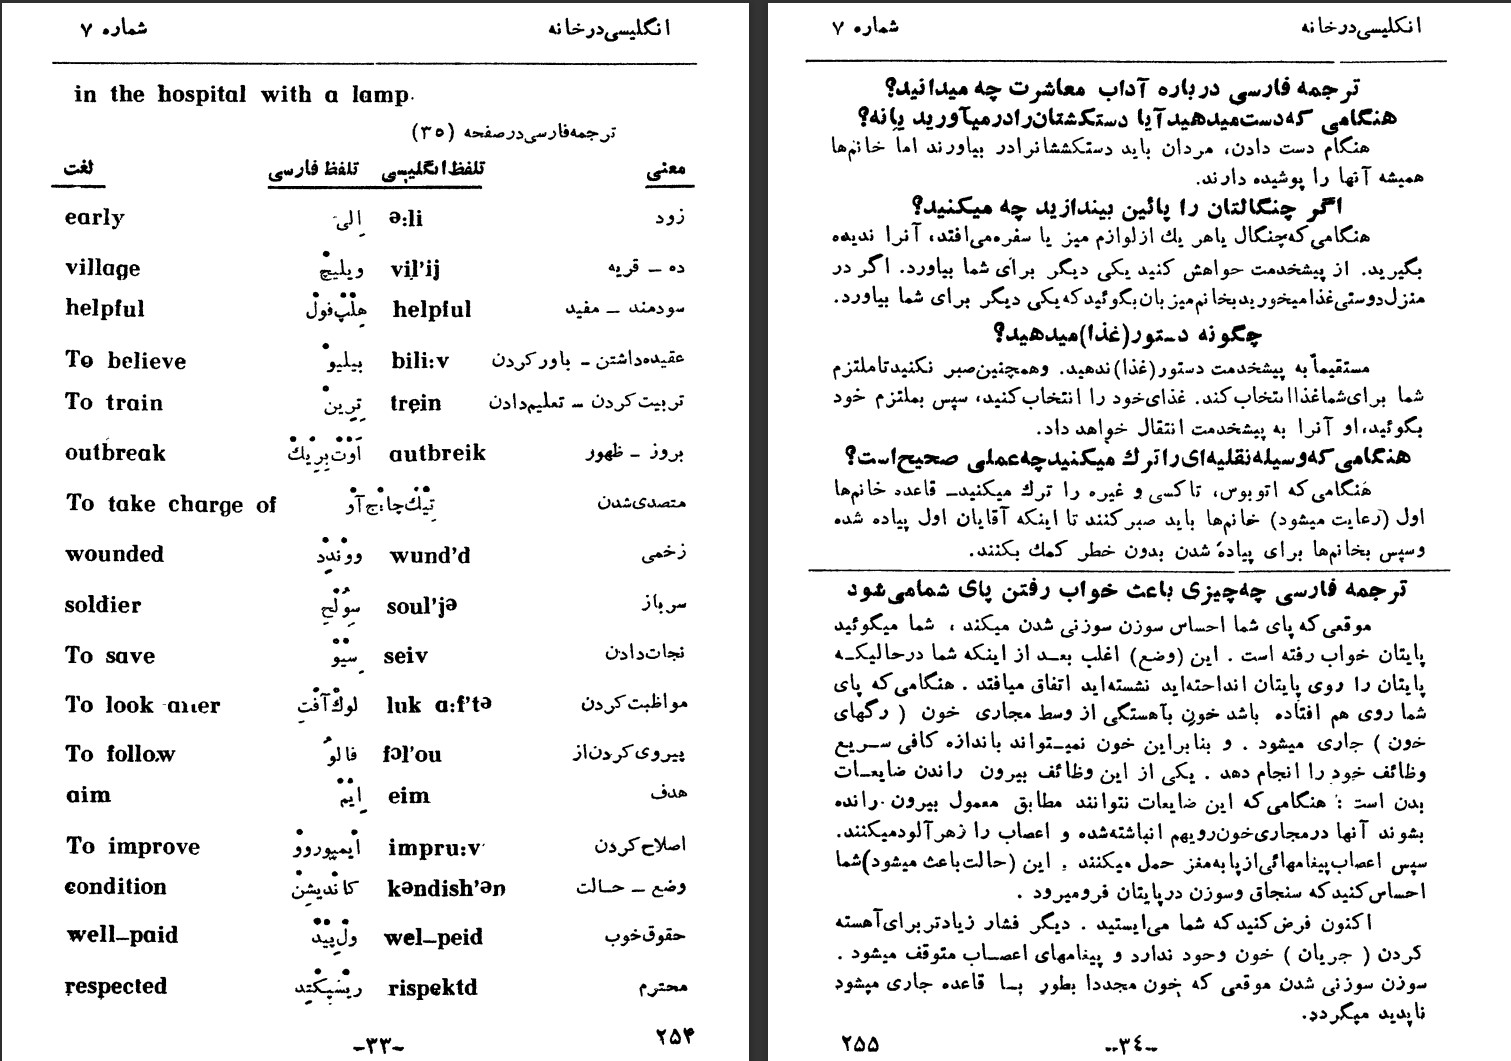 انگلیسی‌درخانه شماره ۷
in the hospital with a lamp.
ترجمه‌فارسی‌درصفحه (۳۵)
لغت تلفظ فارسی تلفظ انگلیسی معنی
early اِلی ə:li زود
village ویلیج vil'ij ده – قریه
helpful هلپ‌فول helpful سودمند – مفید
To believe بیلیو bili:v عقیده‌داشتن – باورکردن
To train ترین trein تربیت‌کردن – تعلیم‌دادن
outbreak آوت‌بریك autbreik بروز – ظهور
To take charge of تیك‌چارج‌آو متصدی‌شدن
wounded ووندد wund'd زخمی
soldier سولج soul'jə سرباز
To save سیو seiv نجات‌دادن
To look after لوك‌آفت luk a:f'tə مواظبت‌کردن
To follow فالو fəl'ou پیروی‌کردن‌از
aim ایم eim هدف
To improve ایمپوروو impru:v اصلاح‌کردن
condition کاندیشن kəndish'ən وضع – حالت
well–paid ول‌پید wel–peid حقوق‌خوب
respected ریسپکتد rispektd محترم
–۳۳– ۲۵۴
انگلیسی‌درخانه شماره ۷
ترجمه فارسی درباره آداب معاشرت چه میدانید؟
هنگامی که‌دست‌میدهیدآیا دستکشتان‌رادرمیآورید یانه؟
هنگام دست دادن، مردان باید دستکششانرادر بیاورند اما خانم‌ها
همیشه آنها را پوشیده دارند.
اگر چنگالتان را پائین بیندازید چه میکنید؟
هنگامی‌که‌چنگال یاهر یك ازلوازم میز یا سفره‌می‌افتد، آنرا ندیده
بگیرید. از پیشخدمت حواهش کنید یکی دیگر برای شما بیاورد. اگر در
منزل‌دوستی‌غذامیخوریدبخانم‌میزبان‌بگوئیدکه‌یکی دیگر برای شما بیاورد.
چگونه دستور(غذا)میدهید؟
مستقیماً به پیشخدمت دستور(غذا)ندهید. وهمچنین‌صبر نکنیدتاملتزم
شما برای‌شماغذاانتخاب‌کند. غذای‌خود را انتخاب‌کنید، سپس بملتزم خود
بگوئید،او آنرا به پیشخدمت انتقال خواهد داد.
هنگامی که‌وسیله‌نقلیه‌ای‌راترك میکنیدچه‌عملی صحیح‌است؟
هنگامی‌که اتوبوس، تاکسی و غیره را ترك میکنید– قاعده خانم‌ها
اول (رعایت میشود) خانم‌ها باید صبرکنند تا اینکه آقایان اول پیاده شده
وسپس بخانم‌ها برای پیاده شدن بدون خطر کمك بکنند.
ترجمه فارسی چه‌چیزی باعث خواب رفتن پای شمامی‌شود
موقعی‌که پای شما احساس سوزن سوزنی شدن میکند ، شما میگوئید
پایتان خواب رفته است . این (وضع) اغلب بعد از اینکه شما درحالیکه
پایتان را روی پایتان انداحته‌اید نشسته‌اید اتفاق میافتد . هنگامی‌که پای
شما روی هم افتاده باشد خون بآهستگی از وسط مجاری خون ( رگهای
خون ) جاری میشود . و بنابراین خون نمیتواند باندازه کافی سریع
وظائف خود را انجام دهد . یکی از این وظائف بیرون راندن ضایعات
بدن است : هنگامی‌که این ضایعات نتوانند مطابق معمول بیرون رانده
بشوند آنها درمجاری‌خون‌رویهم انباشته‌شده و اعصاب را زهرآلودمیکنند.
سپس اعصاب‌پیغامهائی‌ازپابه‌مغز حمل میکنند . این (حالت‌باعث میشود)شما
احساس‌کنیدکه سنجاق وسوزن درپایتان فرومیرود .
اکنون فرض‌کنیدکه شما می‌ایستید . دیگر فشار زیادتربرای‌آهسته
کردن ( جریان ) خون وحود ندارد و پیغامهای اعصاب متوقف میشود .
سوزن سوزنی شدن موقعی که خون مجددا بطور با قاعده جاری میشود
ناپدید میگردد.
–۳٤– ۲۵۵